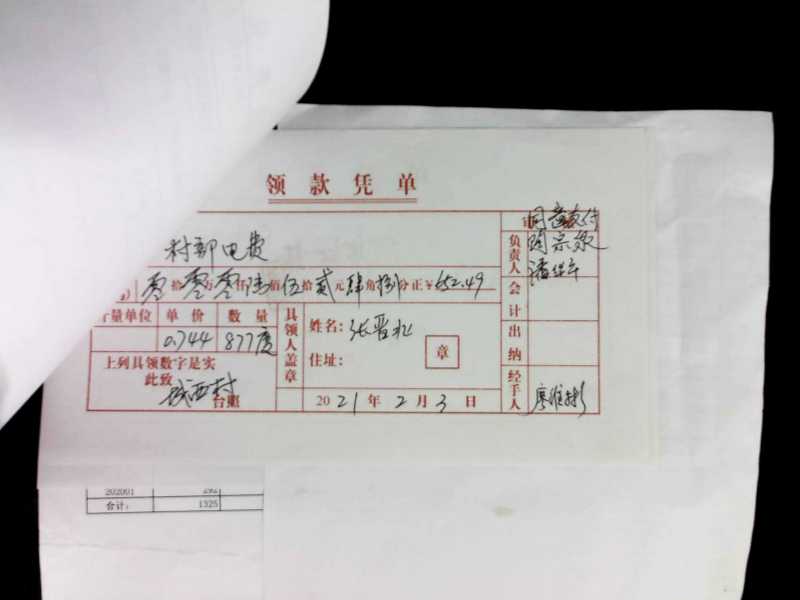 领款凭单
审
同意支付
村部电费
负责人
零拾零万零仟陆佰伍拾贰元肆角捌分正¥652.49
会计
计量单位 单价 数量
具领人盖章
姓名:张晋北
0.744 877度
住址:
章
出纳
上列具领数字是实
此致
城西村 台照
2021年2月3日
经手人
202001 292
合计: 1325